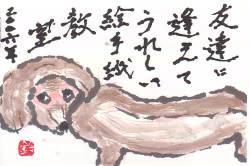 友達に
逢えて
うれしい
絵手紙
教室
二〇〇六年